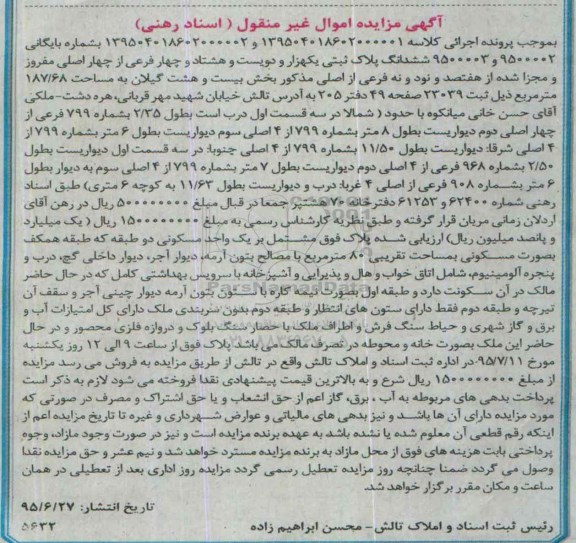 آگهی مزایده اموال غیر منقول ( اسناد رهنی)
بموجب پرونده اجرائی کلاسه ۱۳۹۵۰۴۰۱۸۶۰۲۰۰۰۰۰۱ و ۱۳۹۵۰۴۰۱۸۶۰۲۰۰۰۰۰۲ بشماره بایگانی
۹۵۰۰۰۰۲ و ۹۵۰۰۰۰۳ ششدانگ پلاک ثبتی یکهزار و دویست و هشتاد و چهار فرعی از چهار اصلی مفروز
و مجزا شده از هفتصد و نود و نه فرعی از اصلی مذکور بخش بیست و هشت گیلان به مساحت ۱۸۷/۶۸
مترمربع ذیل ثبت ۲۳۰۳۹ صفحه ۴۹ دفتر ۲۰۵ به آدرس تالش خیابان شهید مهر قربانی، هره دشت-ملکی
آقای حسن خانی میانکوه با حدود ( شمالا در سه قسمت اول درب است بطول ۲/۳۵ بشماره ۷۹۹ فرعی از
چهار اصلی دوم دیواریست بطول ۸ متر بشماره ۷۹۹ از ۴ اصلی سوم دیواریست بطول ۶ متر بشماره ۷۹۹ از
۴ اصلی شرقا: دیواریست بطول ۱۱/۵۰ بشماره ۷۹۹ از ۴ اصلی جنوبا: در سه قسمت اول دیواریست بطول
۲/۵۰ بشماره ۹۶۸ فرعی از ۴ اصلی دوم دیواریست بطول ۷ متر بشماره ۷۹۹ از ۴ اصلی سوم به دیوار بطول
۶ متر بشماره ۹۰۸ فرعی از اصلی ۴ غربا: درب و دیواریست بطول ۱۱/۶۳ به کوچه ۶ متری) طبق اسناد
رهنی شماره ۶۲۴۰۰ و ۶۱۲۵۳ دفترخانه ۷۰ هشتپر جمعا در قبال مبلغ ۵۰۰۰۰۰۰۰۰ ریال در رهن آقای
اردلان زمانی مریان قرار گرفته و طبق نظریه کارشناس رسمی به مبلغ ۱۵۰۰۰۰۰۰۰۰ ریال ( یک میلیارد
و پانصد میلیون ریال) ارزیابی شده پلاک فوق مشتمل بر یک واحد مسکونی دو طبقه که طبقه همکف
بصورت مسکونی بمساحت تقریبی ۸۰ مترمربع با مصالح بتون آرمه، دیوار آجر، دیوار داخلی گچ، درب و
پنجره آلومینیوم، شامل اتاق خواب و هال و پذیرایی و آشپزخانه با سرویس بهداشتی کامل که در حال حاضر
مالک در آن سکونت دارد و طبقه اول بصورت نیمه کاره با ستون بتون آرمه دیوار چینی آجر و سقف آن
تیرچه و طبقه دوم فقط دارای ستون های انتظار و طبقه دوم بدون سربندی ملک دارای کل امتیازات آب و
برق و گاز شهری و حیاط سنگ فرش و اطراف ملک با حصار سنگ بلوک و دروازه فلزی محصور و در حال
حاضر این ملک بصورت خانه و محوطه در تصرف مالک می باشد پلاک فوق از ساعت ۹ الی ۱۲ روز یکشنبه
مورخ ۹۵/۷/۱۱ در اداره ثبت اسناد و املاک تالش واقع در تالش از طریق مزایده به فروش می رسد مزایده
از مبلغ ۱۵۰۰۰۰۰۰۰۰ ریال شرع و به بالاترین قیمت پیشنهادی نقدا فروخته می شود لازم به ذکر است
پرداخت بدهی های مربوطه به آب ، برق، گاز اعم از حق انشعاب و یا حق اشتراک و مصرف در صورتی که
مورد مزایده دارای آن ها باشد و نیز بدهی های مالیاتی و عوارض شهرداری و غیره تا تاریخ مزایده اعم از
اینکه رقم قطعی آن معلوم شده یا نشده باشد به عهده برنده مزایده است و نیز در صورت وجود مازاد، وجوه
پرداختی بابت هزینه های فوق از محل مازاد به برنده مزایده مسترد خواهد شد و نیم عشر و حق مزایده نقدا
وصول می گردد ضمنا چنانچه روز مزایده تعطیل رسمی گردد مزایده روز اداری بعد از تعطیلی در همان
ساعت و مکان مقرر برگزار خواهد شد.
تاریخ انتشار: ۹۵/۶/۲۷
رئیس ثبت اسناد و املاک تالش- محسن ابراهیم زاده ۵۶۳۲